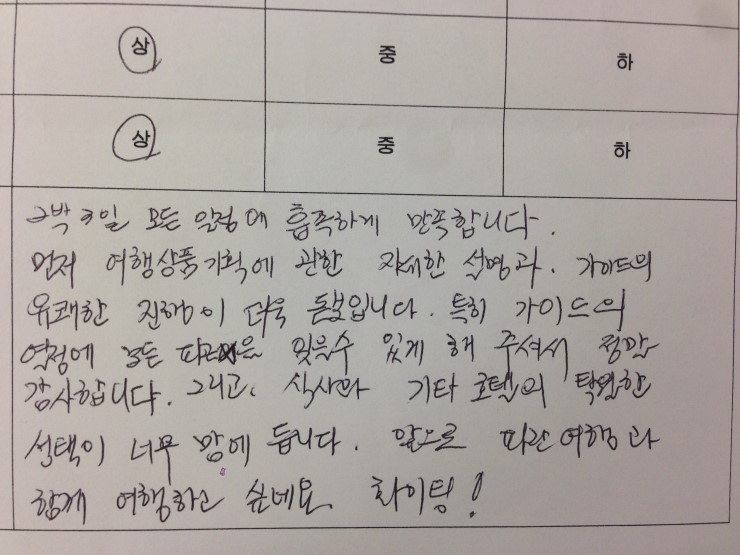 상 중 하
상 중 하
2박3일 모든 일정에 흡족하게 만족합니다.
먼저 여행상품기획에 관한 자세한 설명과. 가이드의
유쾌한 진행이 더욱 돋보입니다. 특히 가이드의
열정에 모든 피곤을 잊을수 있게 해 주셔서 정말
감사합니다. 그리고, 식사와 기타 호텔의 탁월한
선택이 너무 맘에 듭니다. 앞으로 파란여행과
함께 여행하고 싶네요. 화이팅!